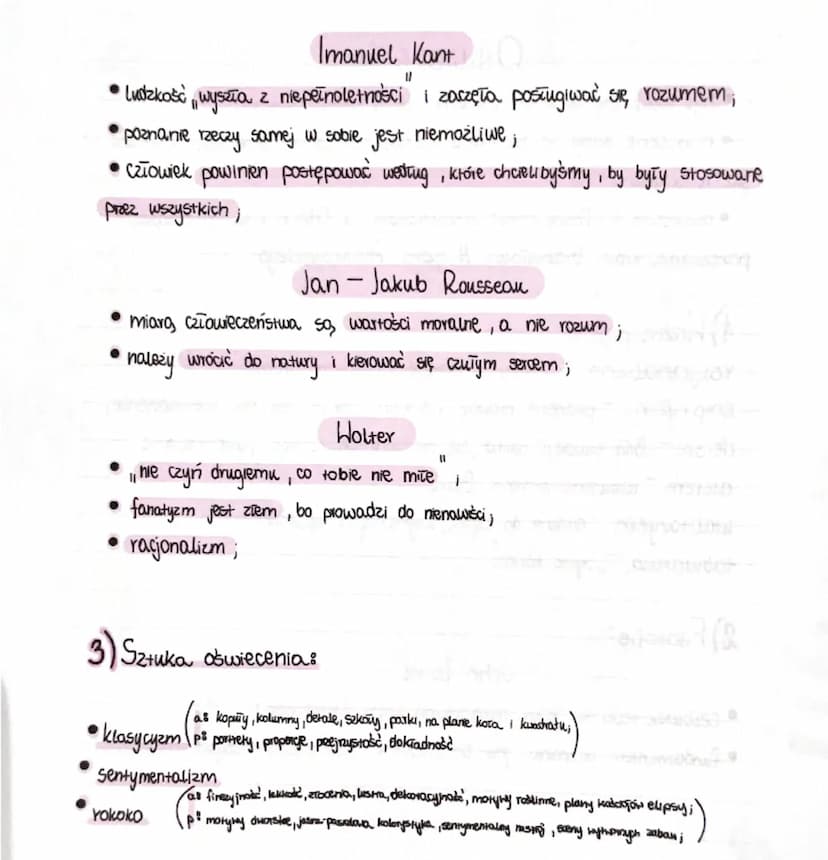 Imanuel Kant
• ludzkość „wyszła z niepełnoletności" i zaczęła posługiwać się rozumem;
• poznanie rzeczy samej w sobie jest niemożliwe;
• człowiek powinien postępować według, które chcielibyśmy, by były stosowane
przez wszystkich;
Jan – Jakub Rousseau
• miarą człowieczeństwa są wartości moralne, a nie rozum;
• należy wrócić do natury i kierować się czułym sercem;
Wolter
• „nie czyń drugiemu, co tobie nie miłe";
• fanatyzm jest złem, bo prowadzi do nienawiści;
• racjonalizm;
3) Sztuka oświecenia:
• klasycyzm (a: kopuły, kolumny, detale, szkoły, parki, na planie koła i kwadratu;
p: portrety, proporcje, przejrzystość, dokładność)
• sentymentalizm
• rokoko (a: finezyjność, lekkość, złocenia, lustra, dekoracyjność, motywy roślinne, plany kościołów elipsy;
p: motywy dworskie, jasna-pastelowa kolorystyka, sentymentalny nastrój, sceny wytwornych zabaw;)